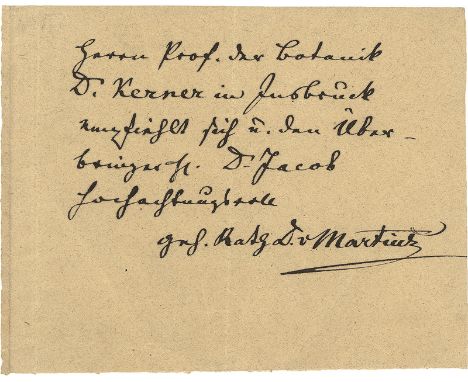 Herrn Prof. der Botanik
Dr. Kerner in Insbruck
empfiehlt sich u. den Über-
bringer H. Dr. Jacob
hochachtungsvoll
geh. Rath Dr. v Martius